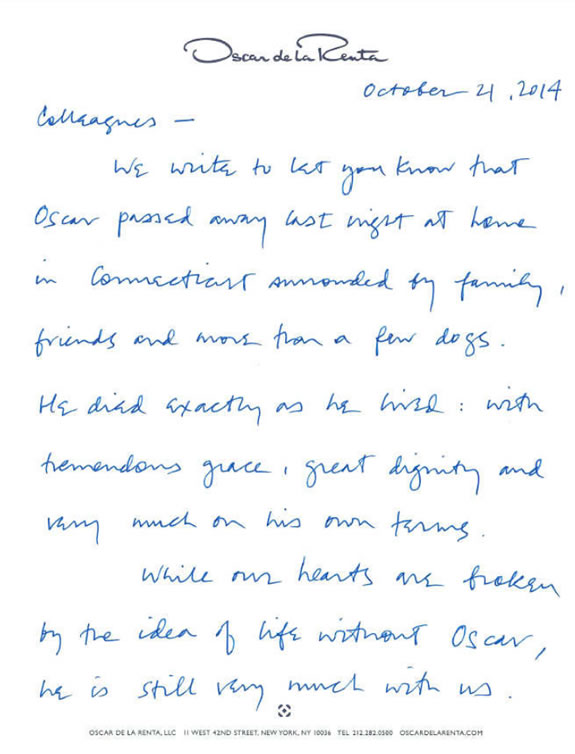 Oscar de la Renta
October 21, 2014
Colleagues —
We write to let you know that
Oscar passed away last night at home
in Connecticut surrounded by family,
friends and more than a few dogs.
He died exactly as he lived: with
tremendous grace, great dignity and
very much on his own terms.
While our hearts are broken
by the idea of life without Oscar,
he is still very much with us.
OSCAR DE LA RENTA, LLC 11 WEST 42ND STREET, NEW YORK, NY 10036 TEL 212.282.0500 OSCARDELARENTA.COM